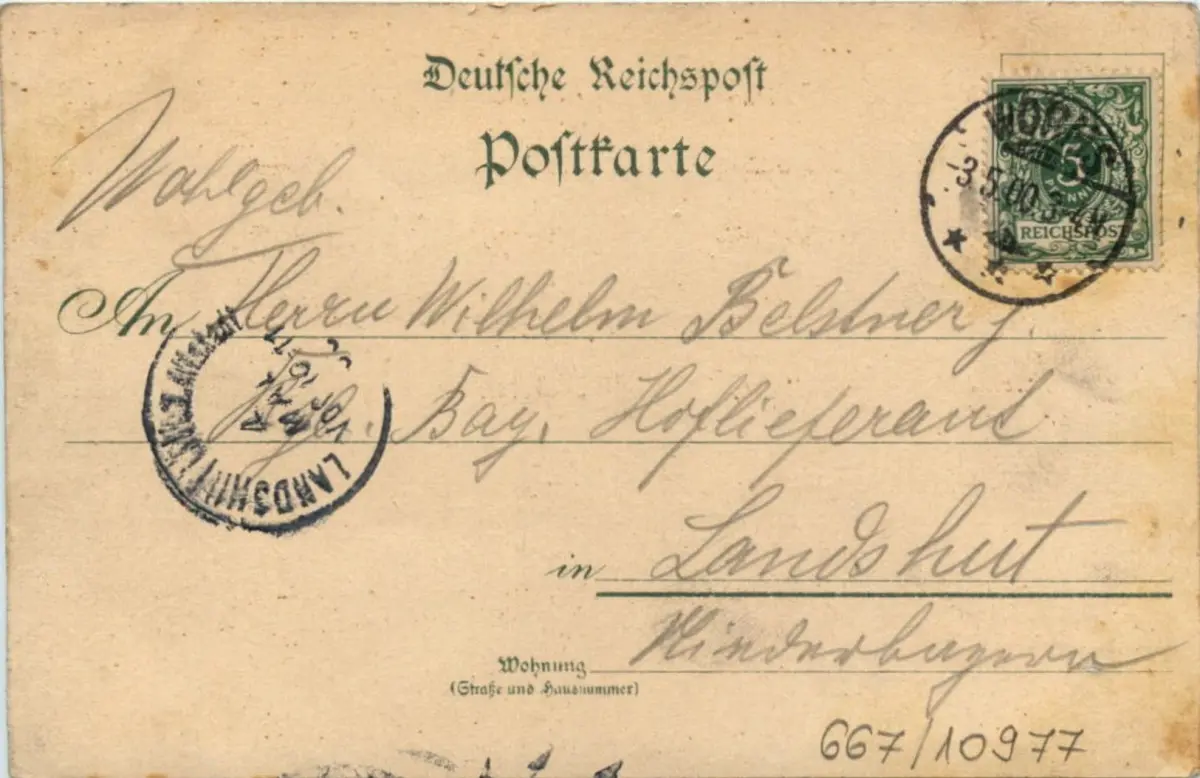 Deutsche Reichspost
Postkarte
WORMS
-3.5.00.3-4N
5
REICHSPOST
Wohlgeb.
An Herrn Wilhelm Belstner j.
Kgl. Bay. Hoflieferant
LANDSHUT
MAI
in Landshut
Niederbayern
Wohnung
(Straße und Hausnummer)
667/10977